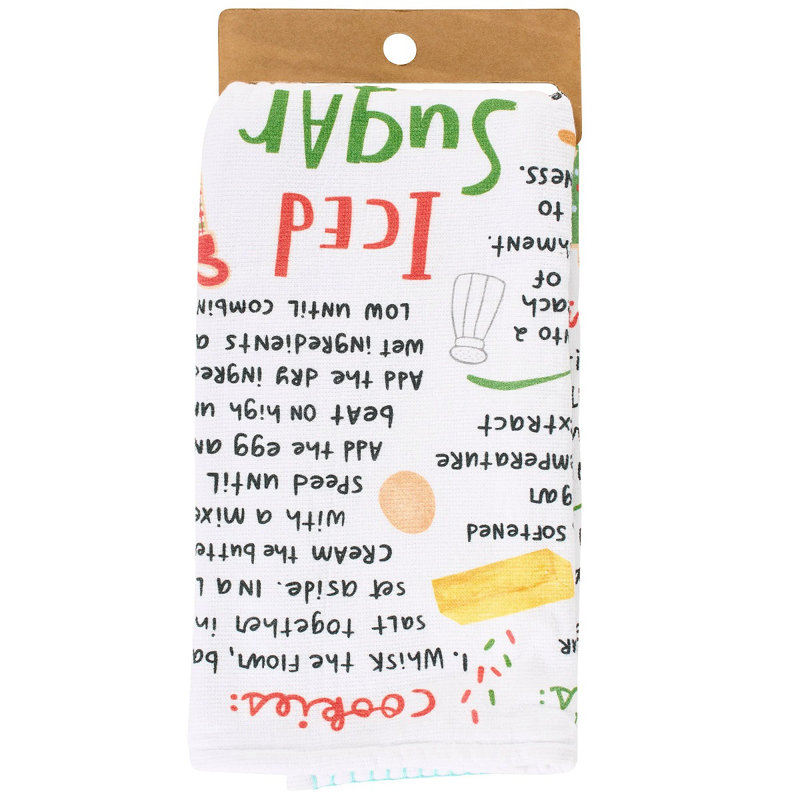 s:
AR
, SOFTENED
gar
emperature
extract
nto a
each
of
hment.
to
Ness.
cookies:
1. Whisk the flour, ba
salt together in
set aside. In a l
Cream the butte
with a mixe
speed until
Add the egg an
beat on high un
Add the dry ingre
wet ingredients a
low until combin
ICED
SugAr